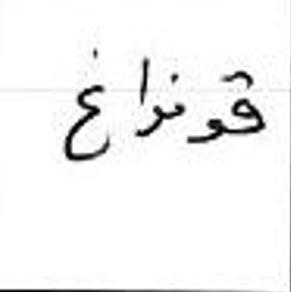 قونداغ